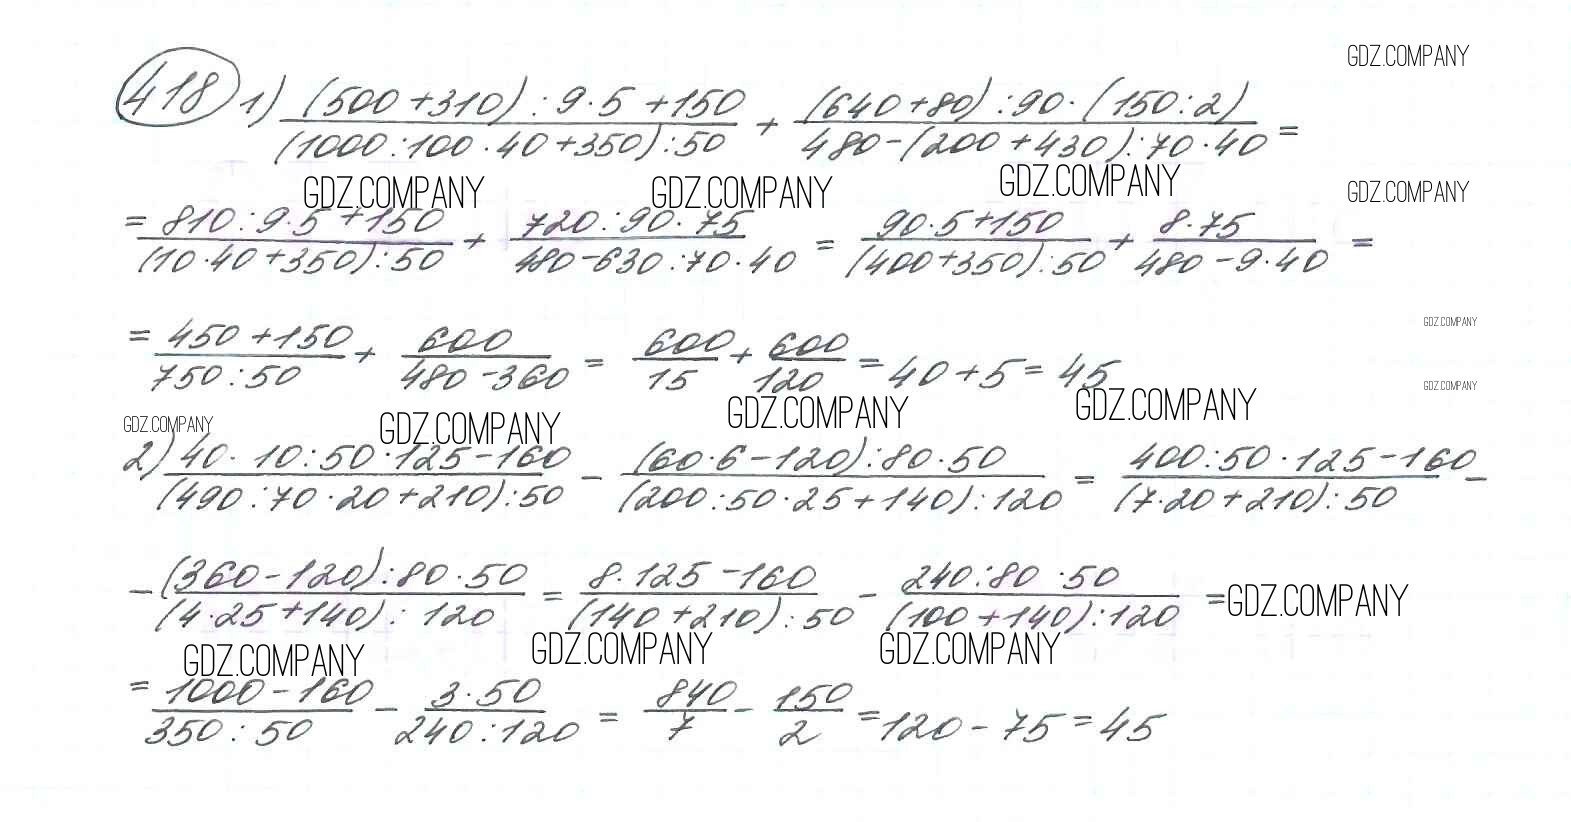 GDZ.COMPANY
418 1) ((500+310):9·5+150)/((1000:100·40+350):50) + ((640+80):90·(150:2))/(480-(200+430):70·40) =
GDZ.COMPANY GDZ.COMPANY GDZ.COMPANY GDZ.COMPANY
= (810:9·5+150)/((10·40+350):50) + (720:90·75)/(480-630:70·40) = (90·5+150)/((400+350):50) + (8·75)/(480-9·40) =
GDZ.COMPANY
= (450+150)/(750:50) + 600/(480-360) = 600/15 + 600/120 = 40+5=45
GDZ.COMPANY
GDZ.COMPANY GDZ.COMPANY GDZ.COMPANY GDZ.COMPANY
2) (40·10:50·125-160)/((490:70·20+210):50) - ((60·6-120):80·50)/((200:50·25+140):120) = (400:50·125-160)/((7·20+210):50) -
- ((360-120):80·50)/((4·25+140):120) = (8·125-160)/((140+210):50) - (240:80·50)/((100+140):120) = GDZ.COMPANY
GDZ.COMPANY GDZ.COMPANY GDZ.COMPANY
= (1000-160)/(350:50) - (3·50)/(240:120) = 840/7 - 150/2 = 120-75=45